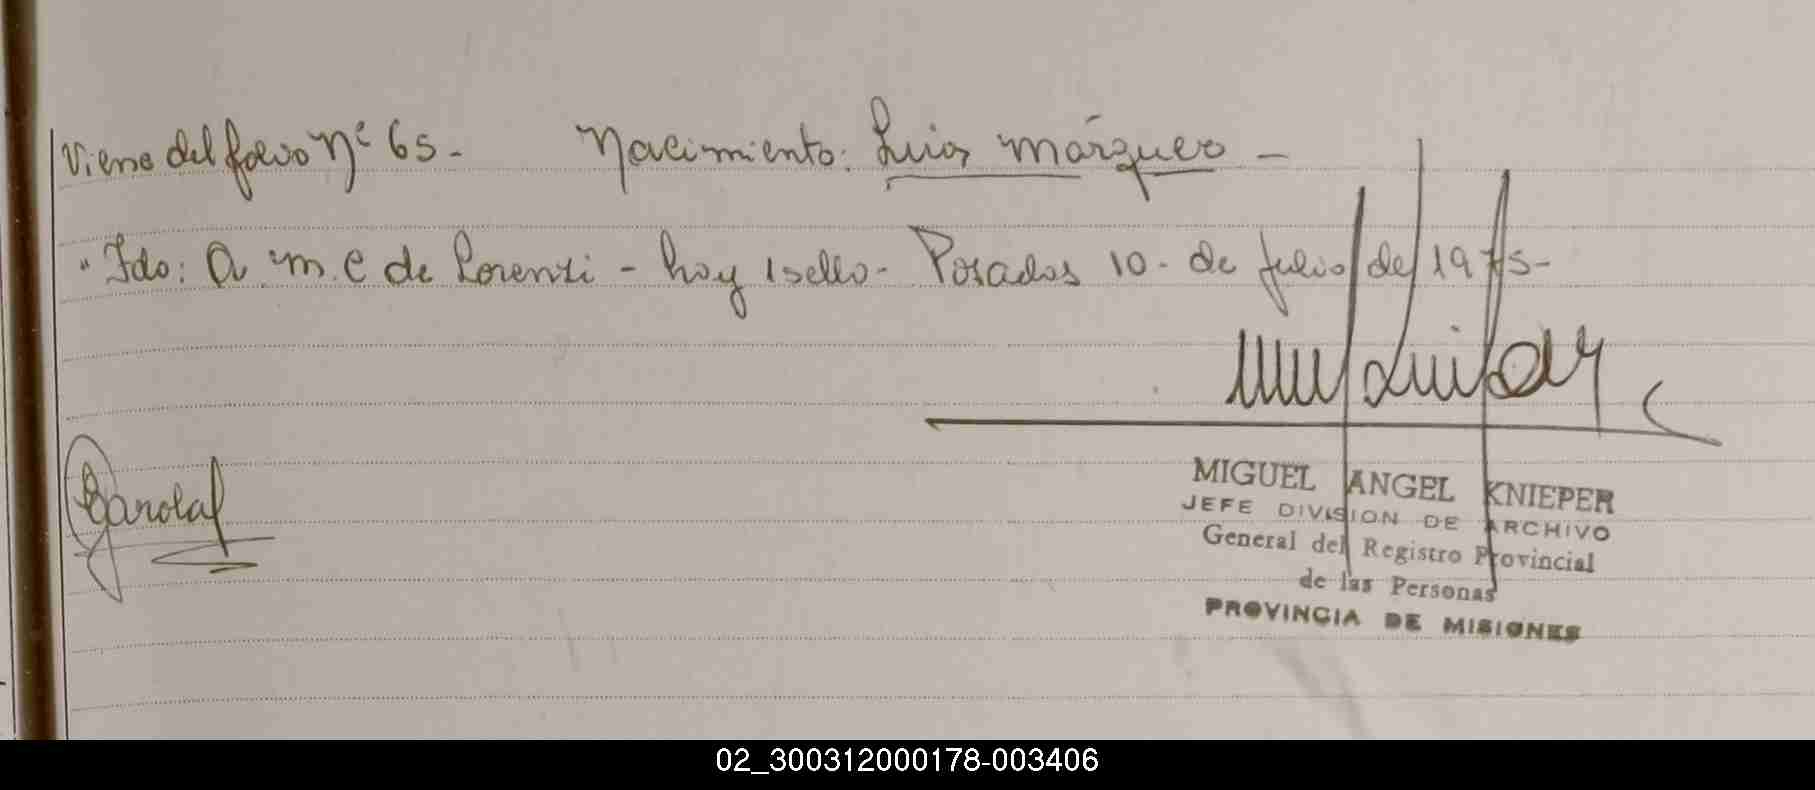 Viene del folio Nº 65- Nacimiento: Luis Márquez -
"Fdo: A. M. C de Lorenzi - hay 1 sello - Posadas 10 - de Julio de 1975-
MIGUEL ANGEL KNIEPER
JEFE DIVISION DE ARCHIVO
General del Registro Provincial
de las Personas
PROVINCIA DE MISIONES
02_300312000178-003406